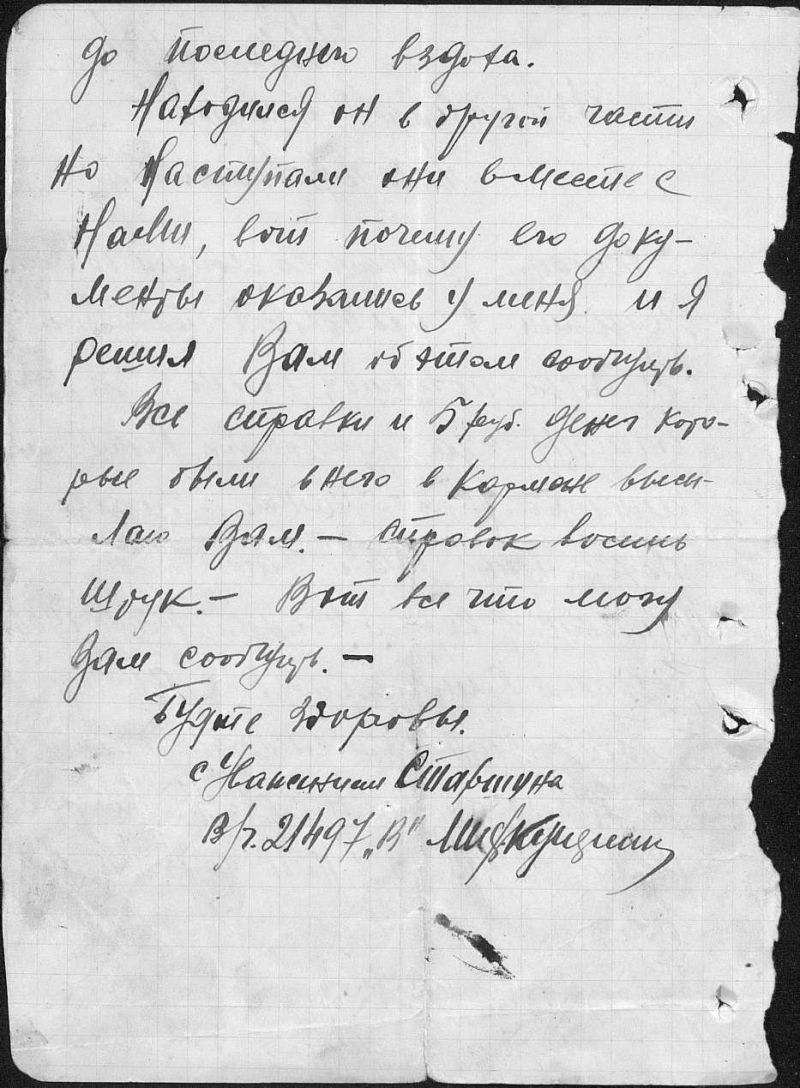 до последнего вздоха.
Находился он в другой части
но наступали они вместе с
нами, вот почему его доку-
менты оказались у меня и я
решил Вам об этом сообщить.
Все справки и 5 руб. денег кото-
рые были в него в кармане высы-
лаю Вам. – справок восинь
штук. – Вот все что могу
Вам сообщить. –
Будте здоровы.
с Уважением Старшина
В/ч. 21497 „В"